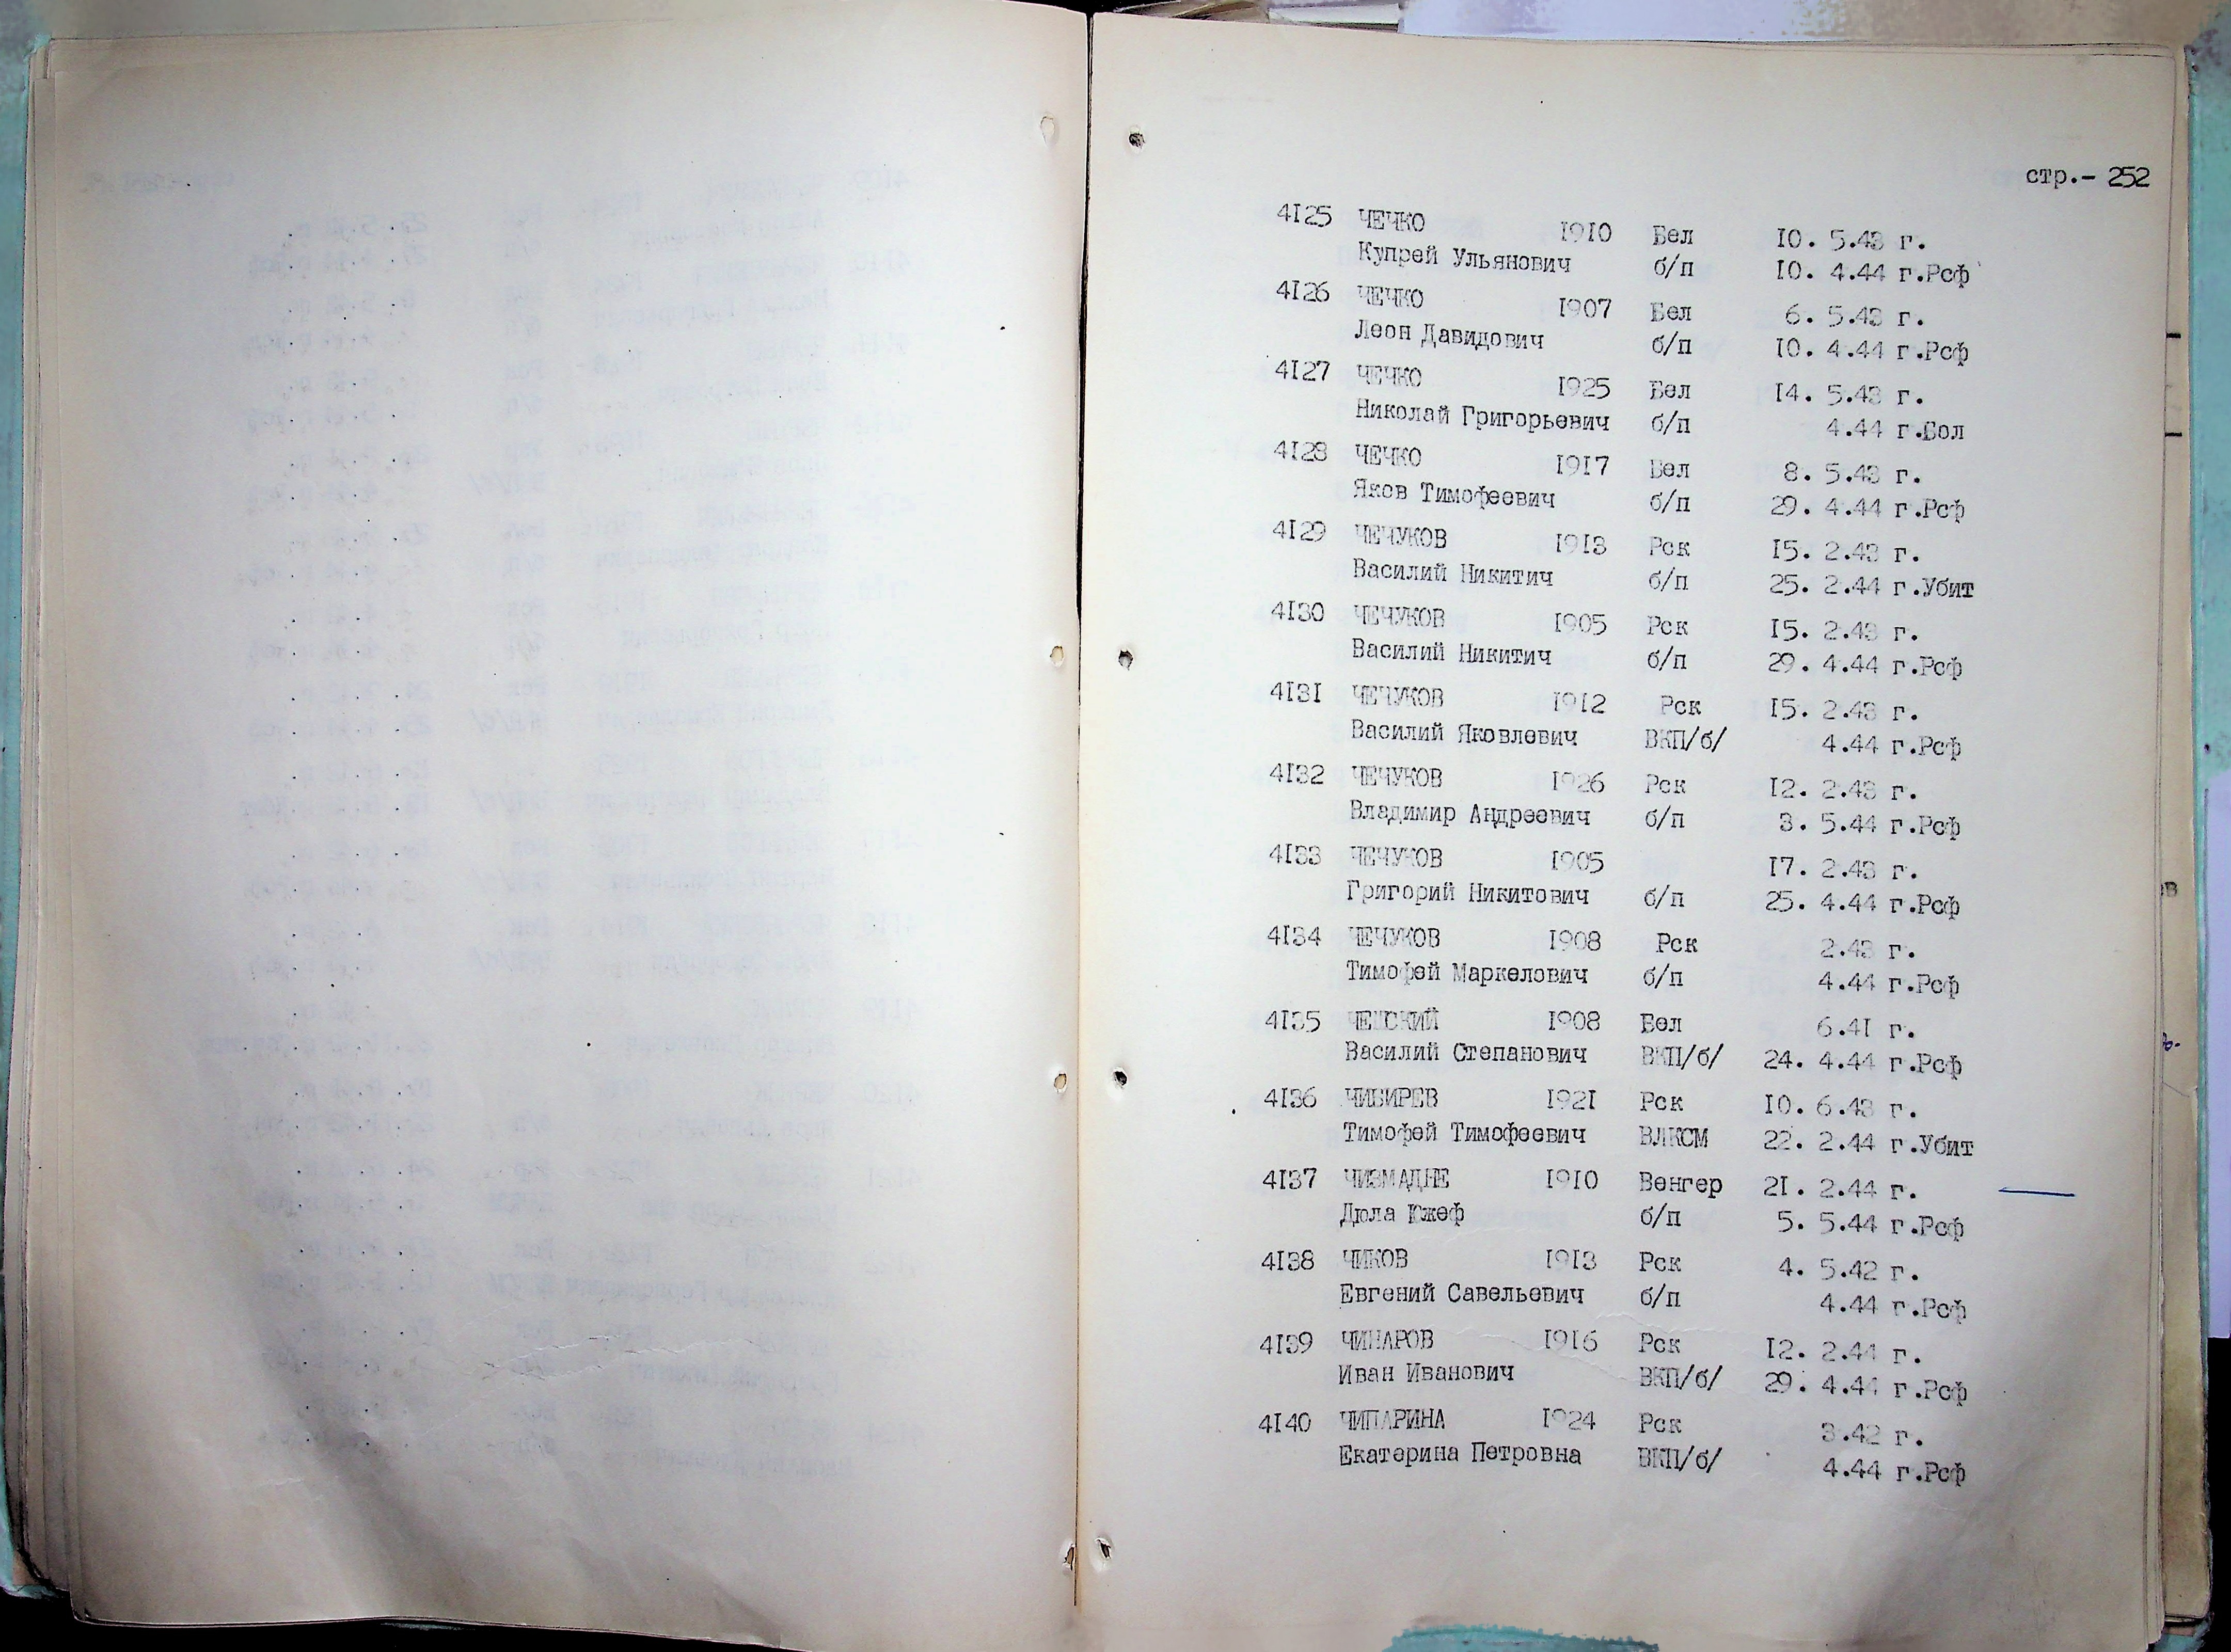 стр.- 252
4125 ЧЕЧКО 1910 Бел 10. 5.43 г.
Купрей Ульянович б/п 10. 4.44 г.Рсф
4126 ЧЕЧКО 1907 Бел 6. 5.43 г.
Леон Давидович б/п 10. 4.44 г.Рсф
4127 ЧЕЧКО 1925 Бел 14. 5.43 г.
Николай Григорьевич б/п 4.44 г.Бол
4128 ЧЕЧКО 1917 Бел 8. 5.43 г.
Яков Тимофеевич б/п 29. 4.44 г.Рсф
4129 ЧЕЧУКОВ 1913 Рск 15. 2.43 г.
Василий Никитич б/п 25. 2.44 г.Убит
4130 ЧЕЧУКОВ 1905 Рск 15. 2.43 г.
Василий Никитич б/п 29. 4.44 г.Рсф
4131 ЧЕЧУКОВ 1912 Рск 15. 2.43 г.
Василий Яковлевич ВКП/б/ 4.44 г.Рсф
4132 ЧЕЧУКОВ 1926 Рск 12. 2.43 г.
Владимир Андреевич б/п 3. 5.44 г.Рсф
4133 ЧЕЧУКОВ 1905 17. 2.43 г.
Григорий Никитович б/п 25. 4.44 г.Рсф
4134 ЧЕЧУКОВ 1908 Рск 2.43 г.
Тимофей Маркелович б/п 4.44 г.Рсф
4135 ЧЕШСКИЙ 1908 Бел 6.41 г.
Василий Степанович ВКП/б/ 24. 4.44 г.Рсф
4136 ЧИБИРЕВ 1921 Рск 10. 6.43 г.
Тимофей Тимофеевич ВЛКСМ 22. 2.44 г.Убит
4137 ЧИЗМАДНЕ 1910 Венгер 21. 2.44 г.
Дюла Южеф б/п 5. 5.44 г.Рсф
4138 ЧИКОВ 1913 Рск 4. 5.42 г.
Евгений Савельевич б/п 4.44 г.Рсф
4139 ЧИНАРОВ 1916 Рск 12. 2.44 г.
Иван Иванович ВКП/б/ 29. 4.44 г.Рсф
4140 ЧИПАРИНА 1924 Рск 3.42 г.
Екатерина Петровна ВКП/б/ 4.44 г.Рсф